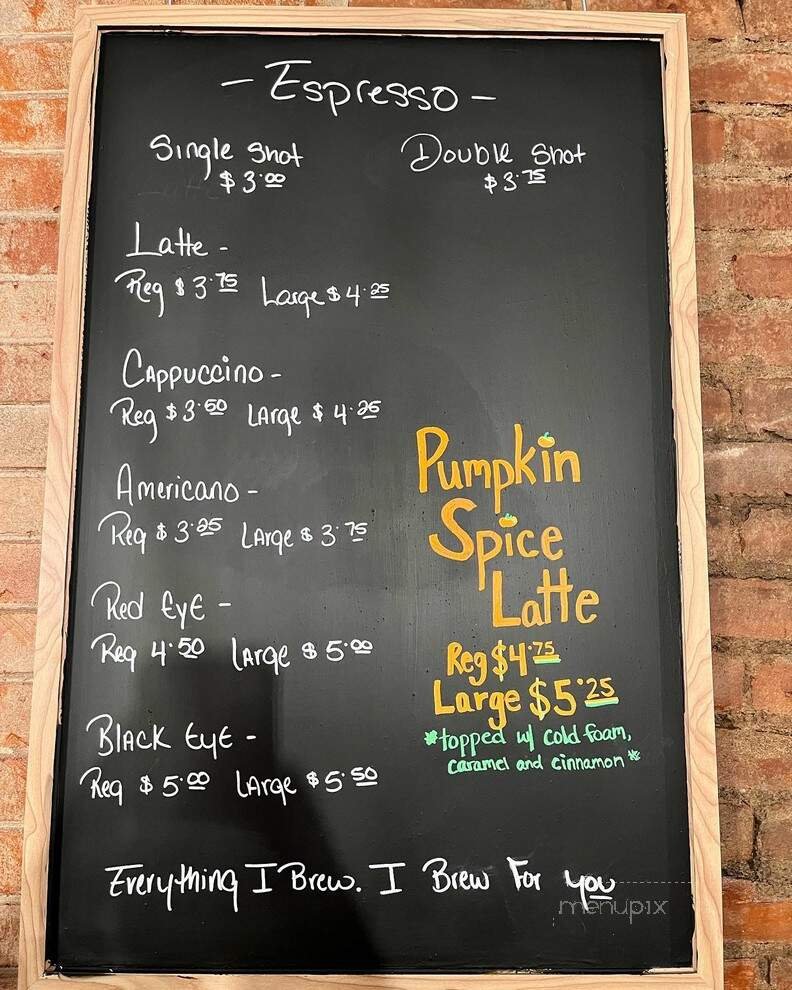 - Espresso -
Single Shot
$3.00
Double Shot
$3.75
Latte -
Reg $3.75 Large $4.25
Cappuccino -
Reg $3.50 Large $4.25
Americano -
Reg $3.25 Large $3.75
Red Eye -
Reg 4.50 Large $5.00
Black Eye -
Reg $5.00 Large $5.50
Pumpkin
Spice
Latte
Reg $4.75
Large $5.25
*topped w/ cold foam,
caramel and cinnamon*
Everything I Brew. I Brew For you
menupix